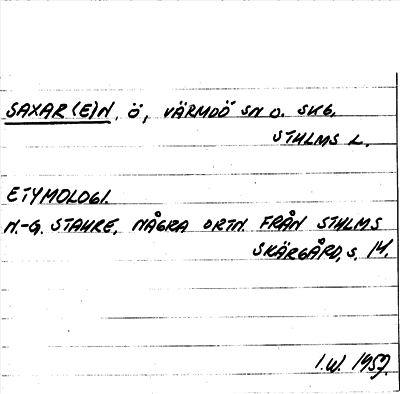 SAXAR(E)N, Ö, VÄRMDÖ SN O. SKG.
STHLMS L.
ETYMOLOGI.
N.-G. STAHRE, NÅGRA ORTN. FRÅN STHLMS
SKÄRGÅRD, S. 14.
I.W. 1957.